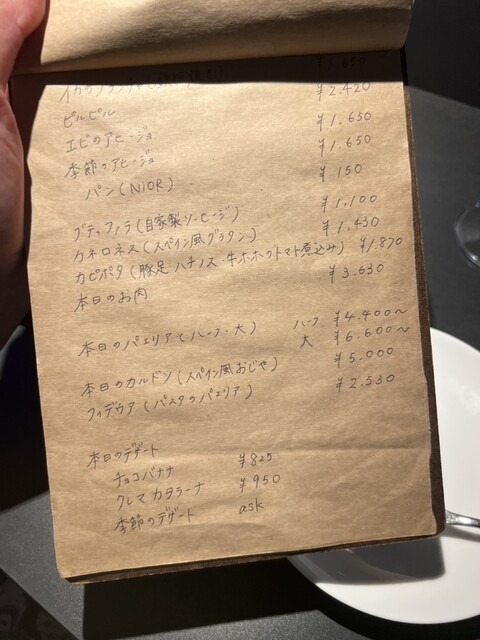 イカのプランチャ ¥1.690
ピルピル ¥2.420
エビのアヒージョ ¥1.650
季節のアヒージョ ¥1.650
パン(NIOR) ¥150
ブティファラ(自家製ソーセージ) ¥1,100
カネロネス(スペイン風グラタン) ¥1,430
カピポタ(豚足 ハチノス・牛ホホのトマト煮込み) ¥1,870
本日のお肉 ¥3.630
本日のパエリア(ハーフ・大) ハーフ ¥4.400〜
大 ¥6.600〜
本日のカルドソ(スペイン風おじや) ¥5.000
フィデウア(パスタのパエリア) ¥2.530
本日のデザート
チョコバナナ ¥825
クレマ カタラーナ ¥950
季節のデザート ask